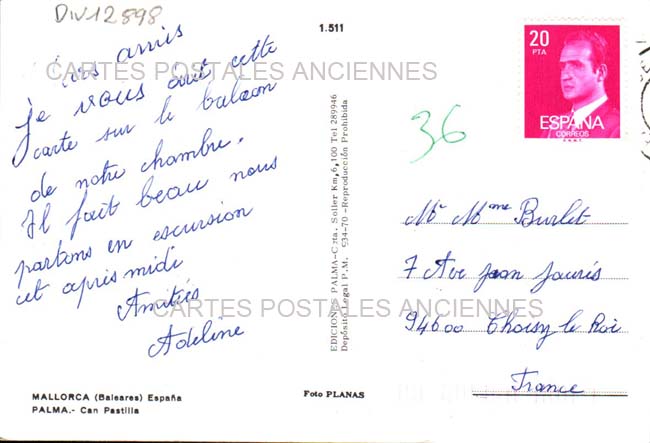 DIV12898
1.511
amis
CARTES POSTALES ANCIENNES
Je vous écris cette
carte sur le balcon
de notre chambre.
Il fait beau nous
partons en escursion
cet après midi
Amitiés
Adeline
CARTES POSTALES ANCIENNES
MALLORCA (Baleares) España
PALMA.- Can Pastilla
EDICIONES PALMA-C/rta. Soller Km,6,100 Tel 289946
Depósito Legal P.M. 934-70 -Reproducción Prohibida
Foto PLANAS
36
20
PTA
ESPAÑA
CORREOS
Mr Mme Burlet
7 Ave Jean Jaurés
94600 Choisy le Roi
France